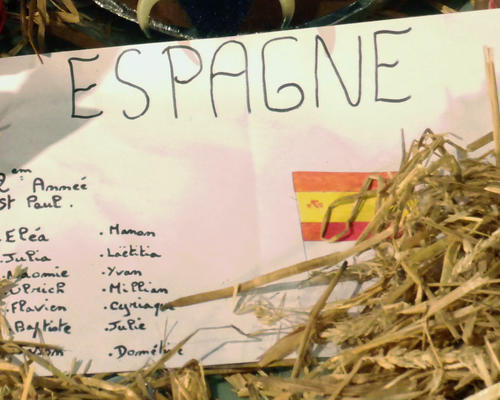 ESPAGNE
2em Année
St Paul.
. Eléa
. Julia
. Naomie
. Ulrich
. Flavien
. Baptiste
. Manon
. Laëtitia
. Yvan
. Millian
. Cyriaque
. Julie
. Domitille